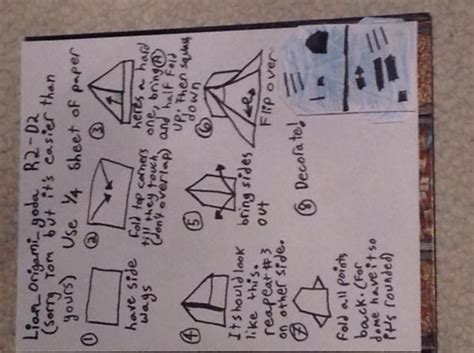 Lian_Origami_yoda R2-D2
(sorry Tom but it's easier than
yours) Use ¼ Sheet of paper
①
have side
ways
②
Fold top corners
till they touch
(don't overlap)
③
here's a hard
one, bring Ⓐ
and half fold
up, then squash
down
④
It should look
like this.
reapeat #3
on other side.
⑤
bring sides
out
⑥
Flip over
⑦
Fold all points
back. (For
dome have it so
it's rounded)
⑧ Decorate!